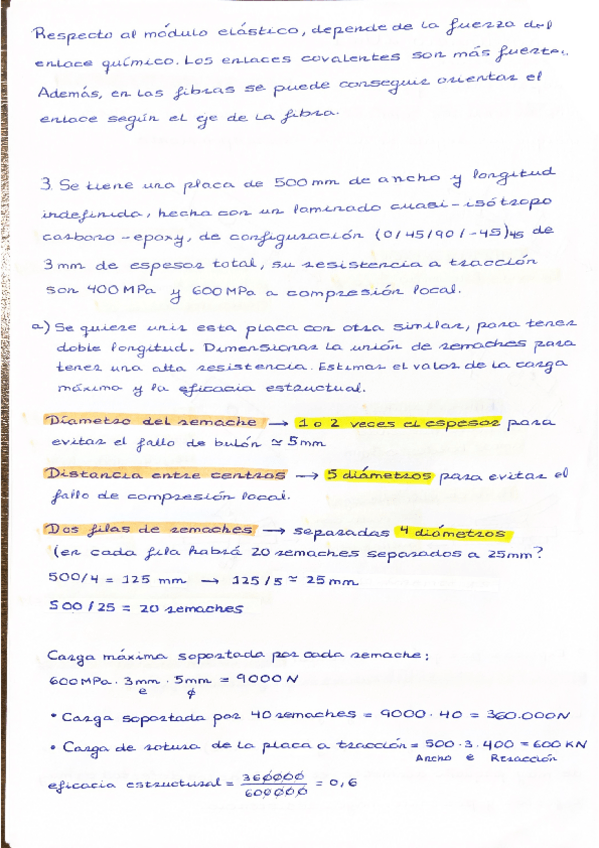 Respecto al módulo elástico, depende de la fuerza del
enlace químico. Los enlaces covalentes son más fuertes.
Además, en las fibras se puede conseguir orientar el
enlace según el eje de la fibra.
3. Se tiene una placa de 500 mm de ancho y longitud
indefinida, hecha con un laminado cuasi-isótropo
carbono-epoxy, de configuración (0/45/90/-45)4S de
3 mm de espesor total, su resistencia a tracción
son 400 MPa y 600 MPa a compresión local.
a) Se quiere unir esta placa con otra similar, para tener
doble longitud. Dimensionar la unión de remaches para
tener una alta resistencia. Estimar el valor de la carga
máxima y la eficacia estructual.
Díametro del remache → 1 o 2 veces el espesor para
evitar el fallo de bulón ≃ 5mm
Distancia entre centros → 5 diámetros para evitar el
fallo de compresión local.
Dos filas de remaches → separadas 4 diámetros
(en cada fila habrá 20 remaches separados a 25mm?
500/4 = 125 mm → 125/5 ≃ 25 mm
500/25 = 20 remaches
Carga máxima soportada por cada remache:
600 MPa · 3mm · 5mm = 9000 N
e ϕ
• Carga soportada por 40 remaches = 9000 · 40 = 360.000N
• Carga de rotura de la placa a tracción = 500 · 3 · 400 = 600 KN
Ancho e Rtracción
eficacia estructural = 360000/600000 = 0,6